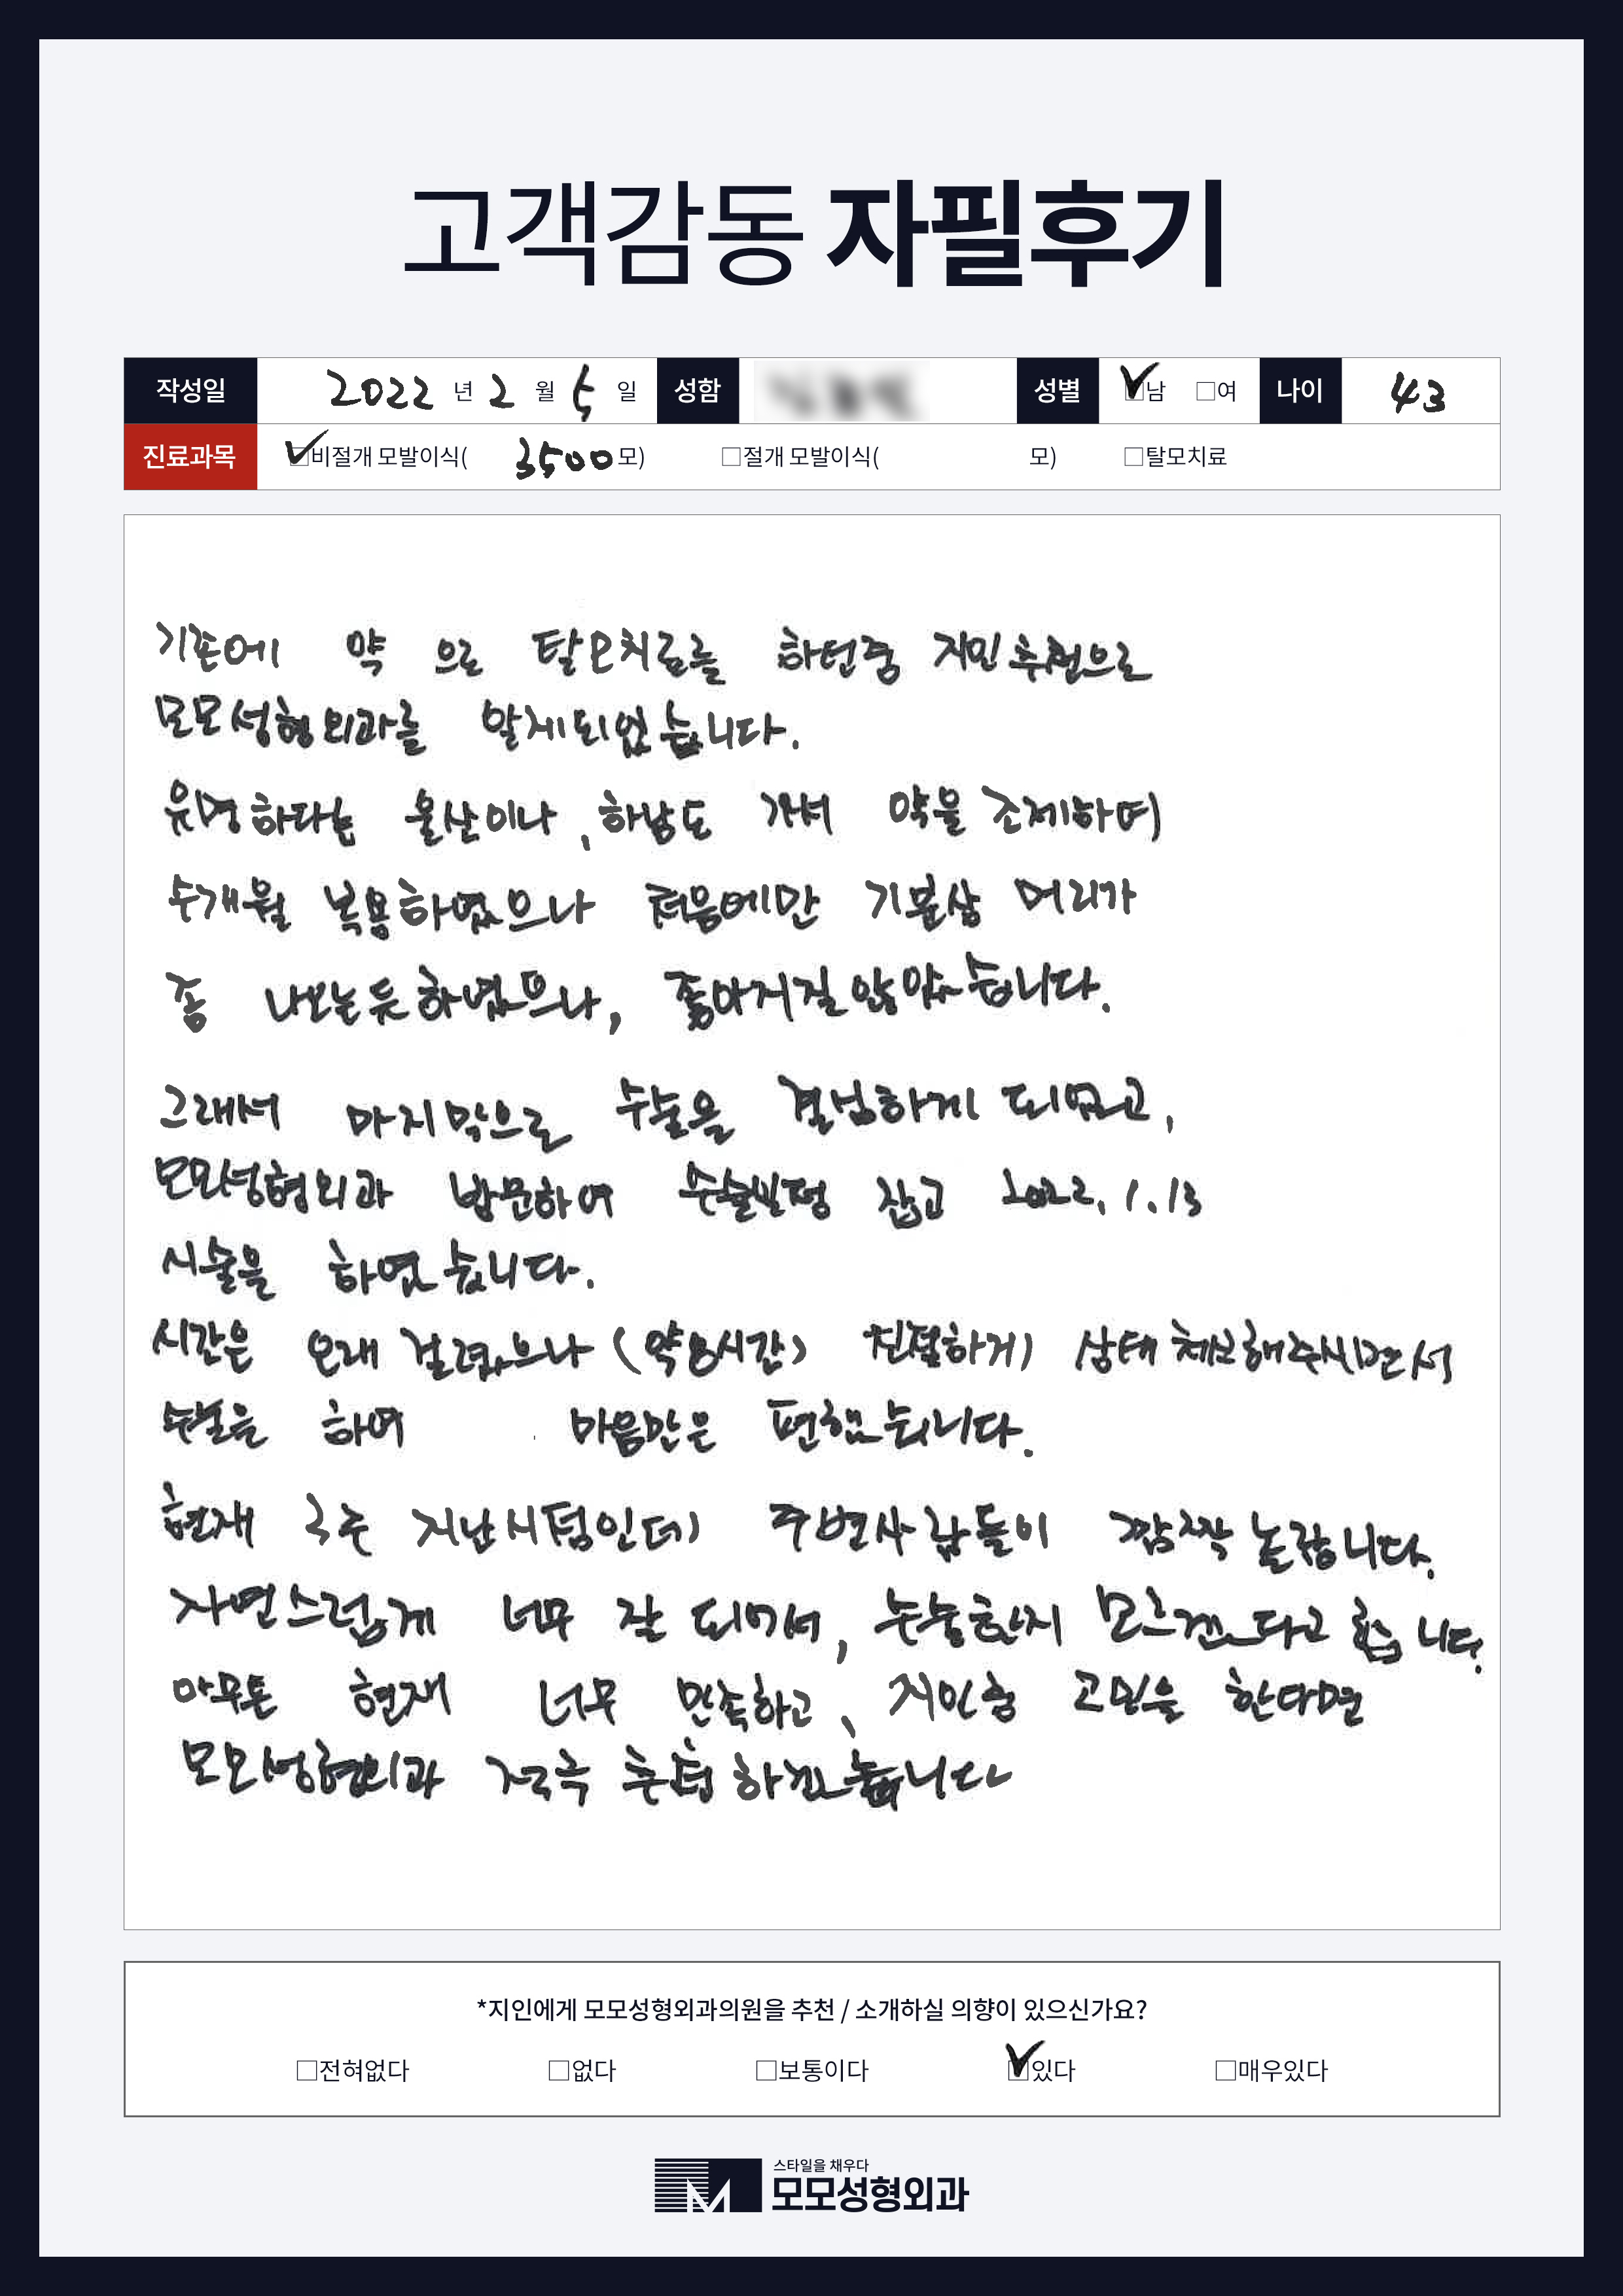 고객감동 자필후기
작성일 2022 년 2 월 5 일 성함 성별 ☑남 □여 나이 43
진료과목 ☑비절개 모발이식( 3500 모) □절개 모발이식( 모) □탈모치료
기존에 약 으로 탈모치료를 하던중 지인추천으로
모모성형외과를 알게되었습니다.
유명하다는 울산이나, 하남도 가서 약을 조제하며
수개월 복용하였으나 처음에만 기분상 머리가
좀 나오는듯하였으나, 좋아지질 않았습니다.
그래서 마지막으로 수술을 결심하게 되었고,
모모성형외과 방문하여 수술일정 잡고 2022. 1. 13
시술을 하였습니다.
시간은 오래 걸렸으나 (약8시간) 친절하게 상태 체크해주시면서
수술을 하여 마음만은 편했습니다.
현재 3주 지난시점인데 주변사람들이 깜짝 놀랍니다.
자연스럽게 너무 잘 되어서, 수술한지 모르겠다고 합니다.
아무튼 현재 너무 만족하고, 지인중 고민을 한다면
모모성형외과 적극 추천하겠습니다
*지인에게 모모성형외과의원을 추천 / 소개하실 의향이 있으신가요?
□전혀없다 □없다 □보통이다 ☑있다 □매우있다
스타일을 채우다
모모성형외과